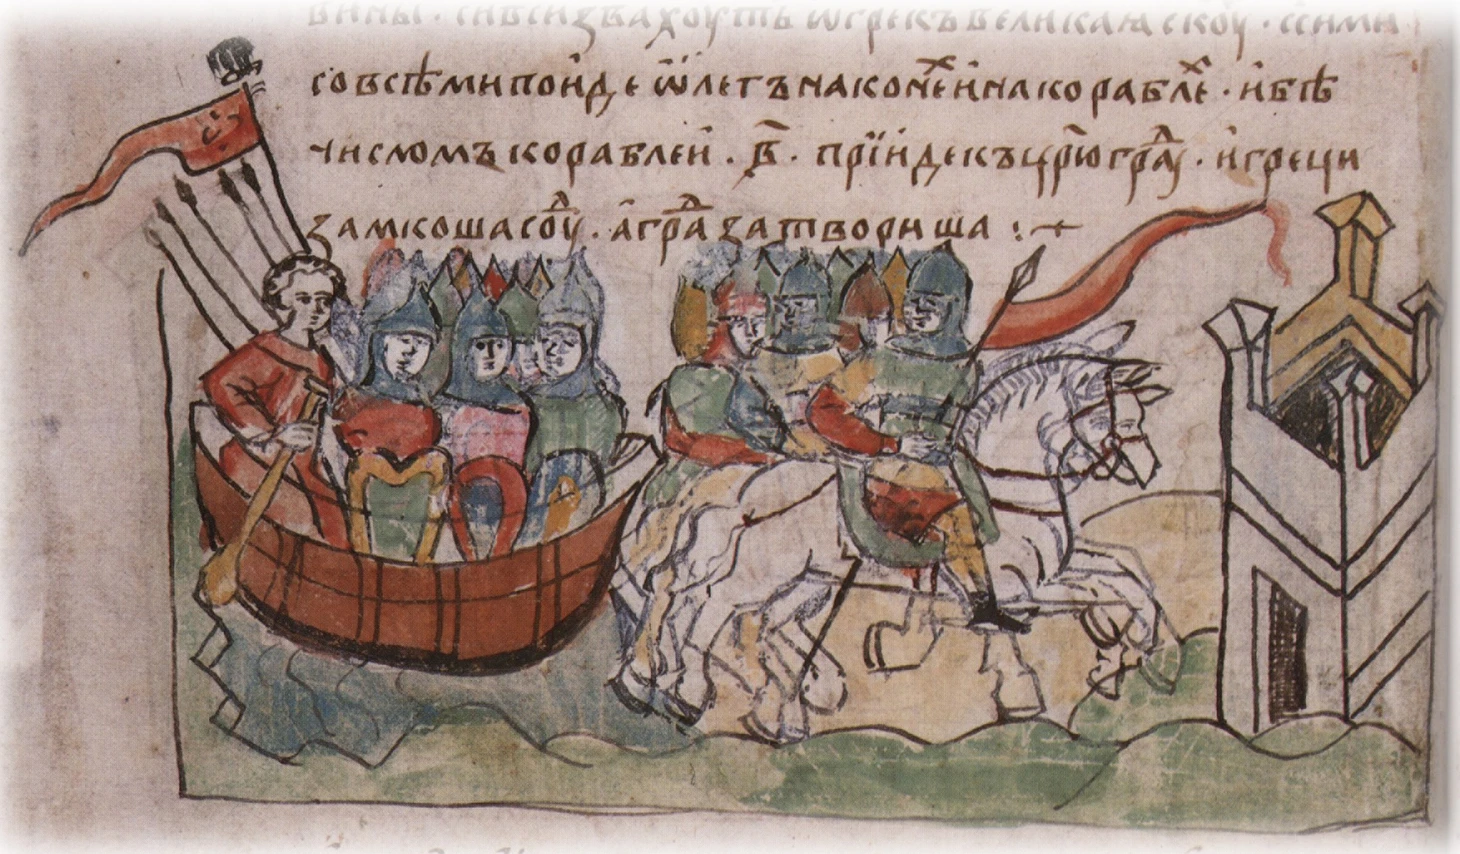 вины · си вси звахоуть ѿ грекъ великаꙗ скоу · с сими
со всѣми поиде ѡлегъ на конеⷯ и на кораблеⷯ · и бѣ
числомъ кораблеи · в҃ · прїиде къ цр҃югра<sup>д</sup>у · и греци
замкоша соу<sup>д</sup> · а гра<sup>д</sup> затвориша :